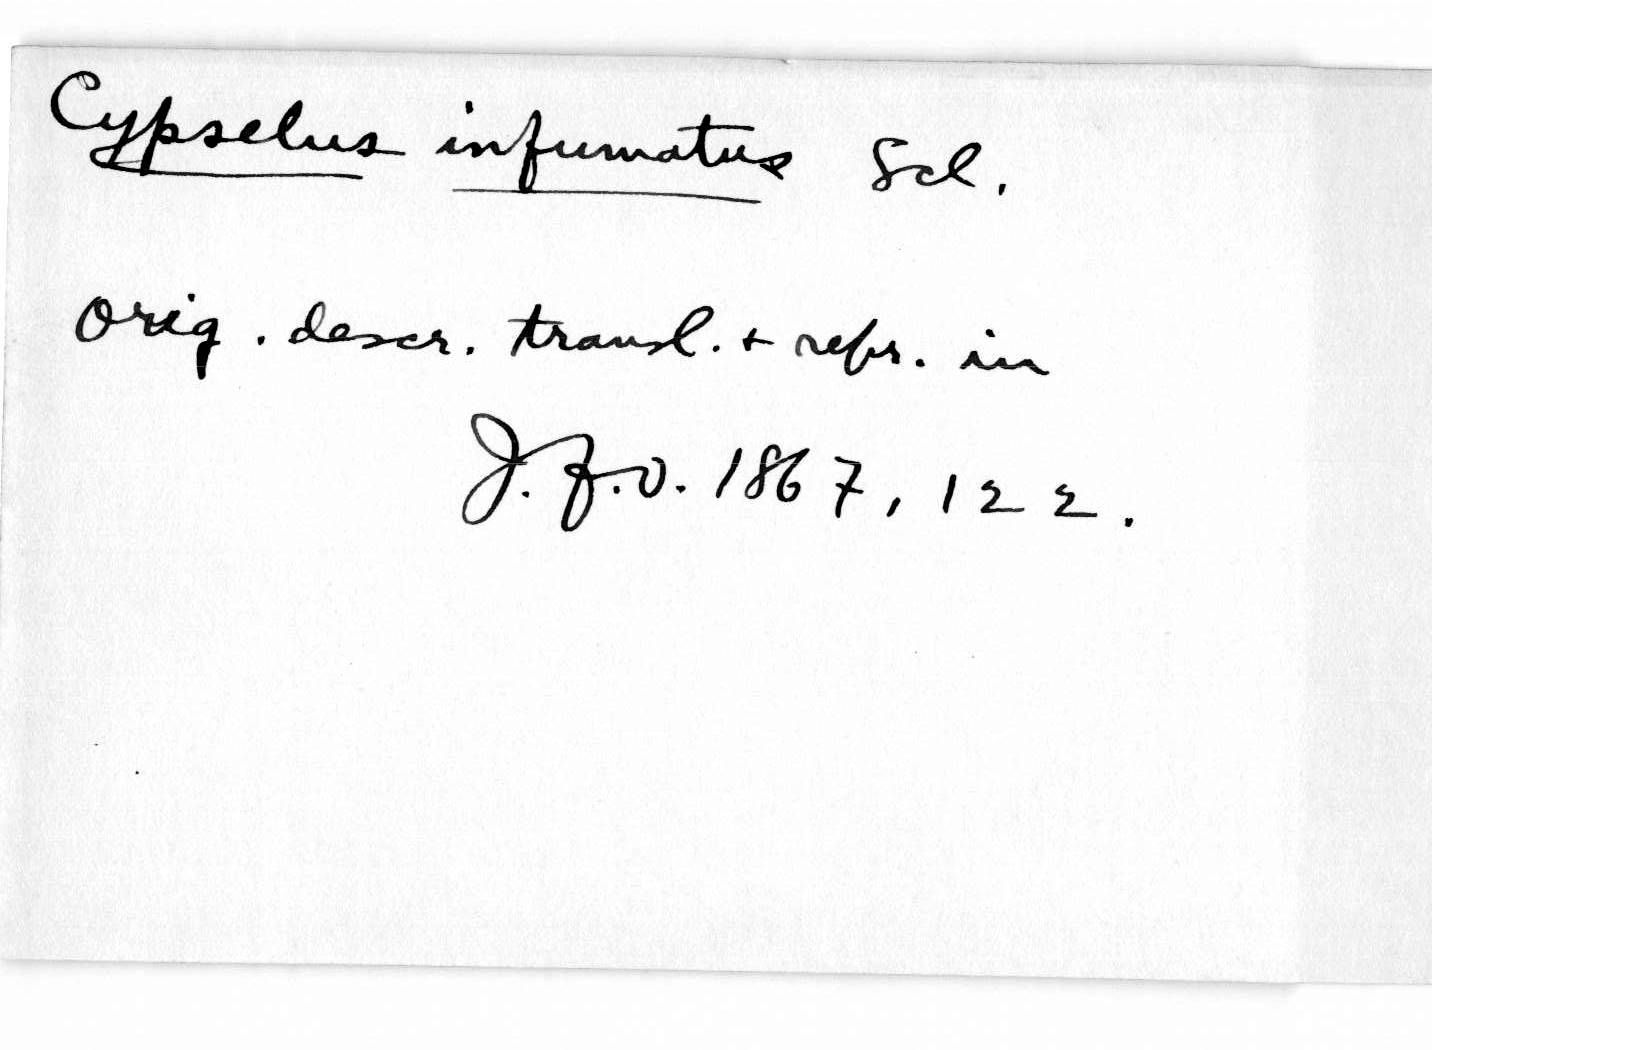 Cypselus infumatus Scl.
orig. descr. transl. + repr. in
J.f.O. 1867, 122.